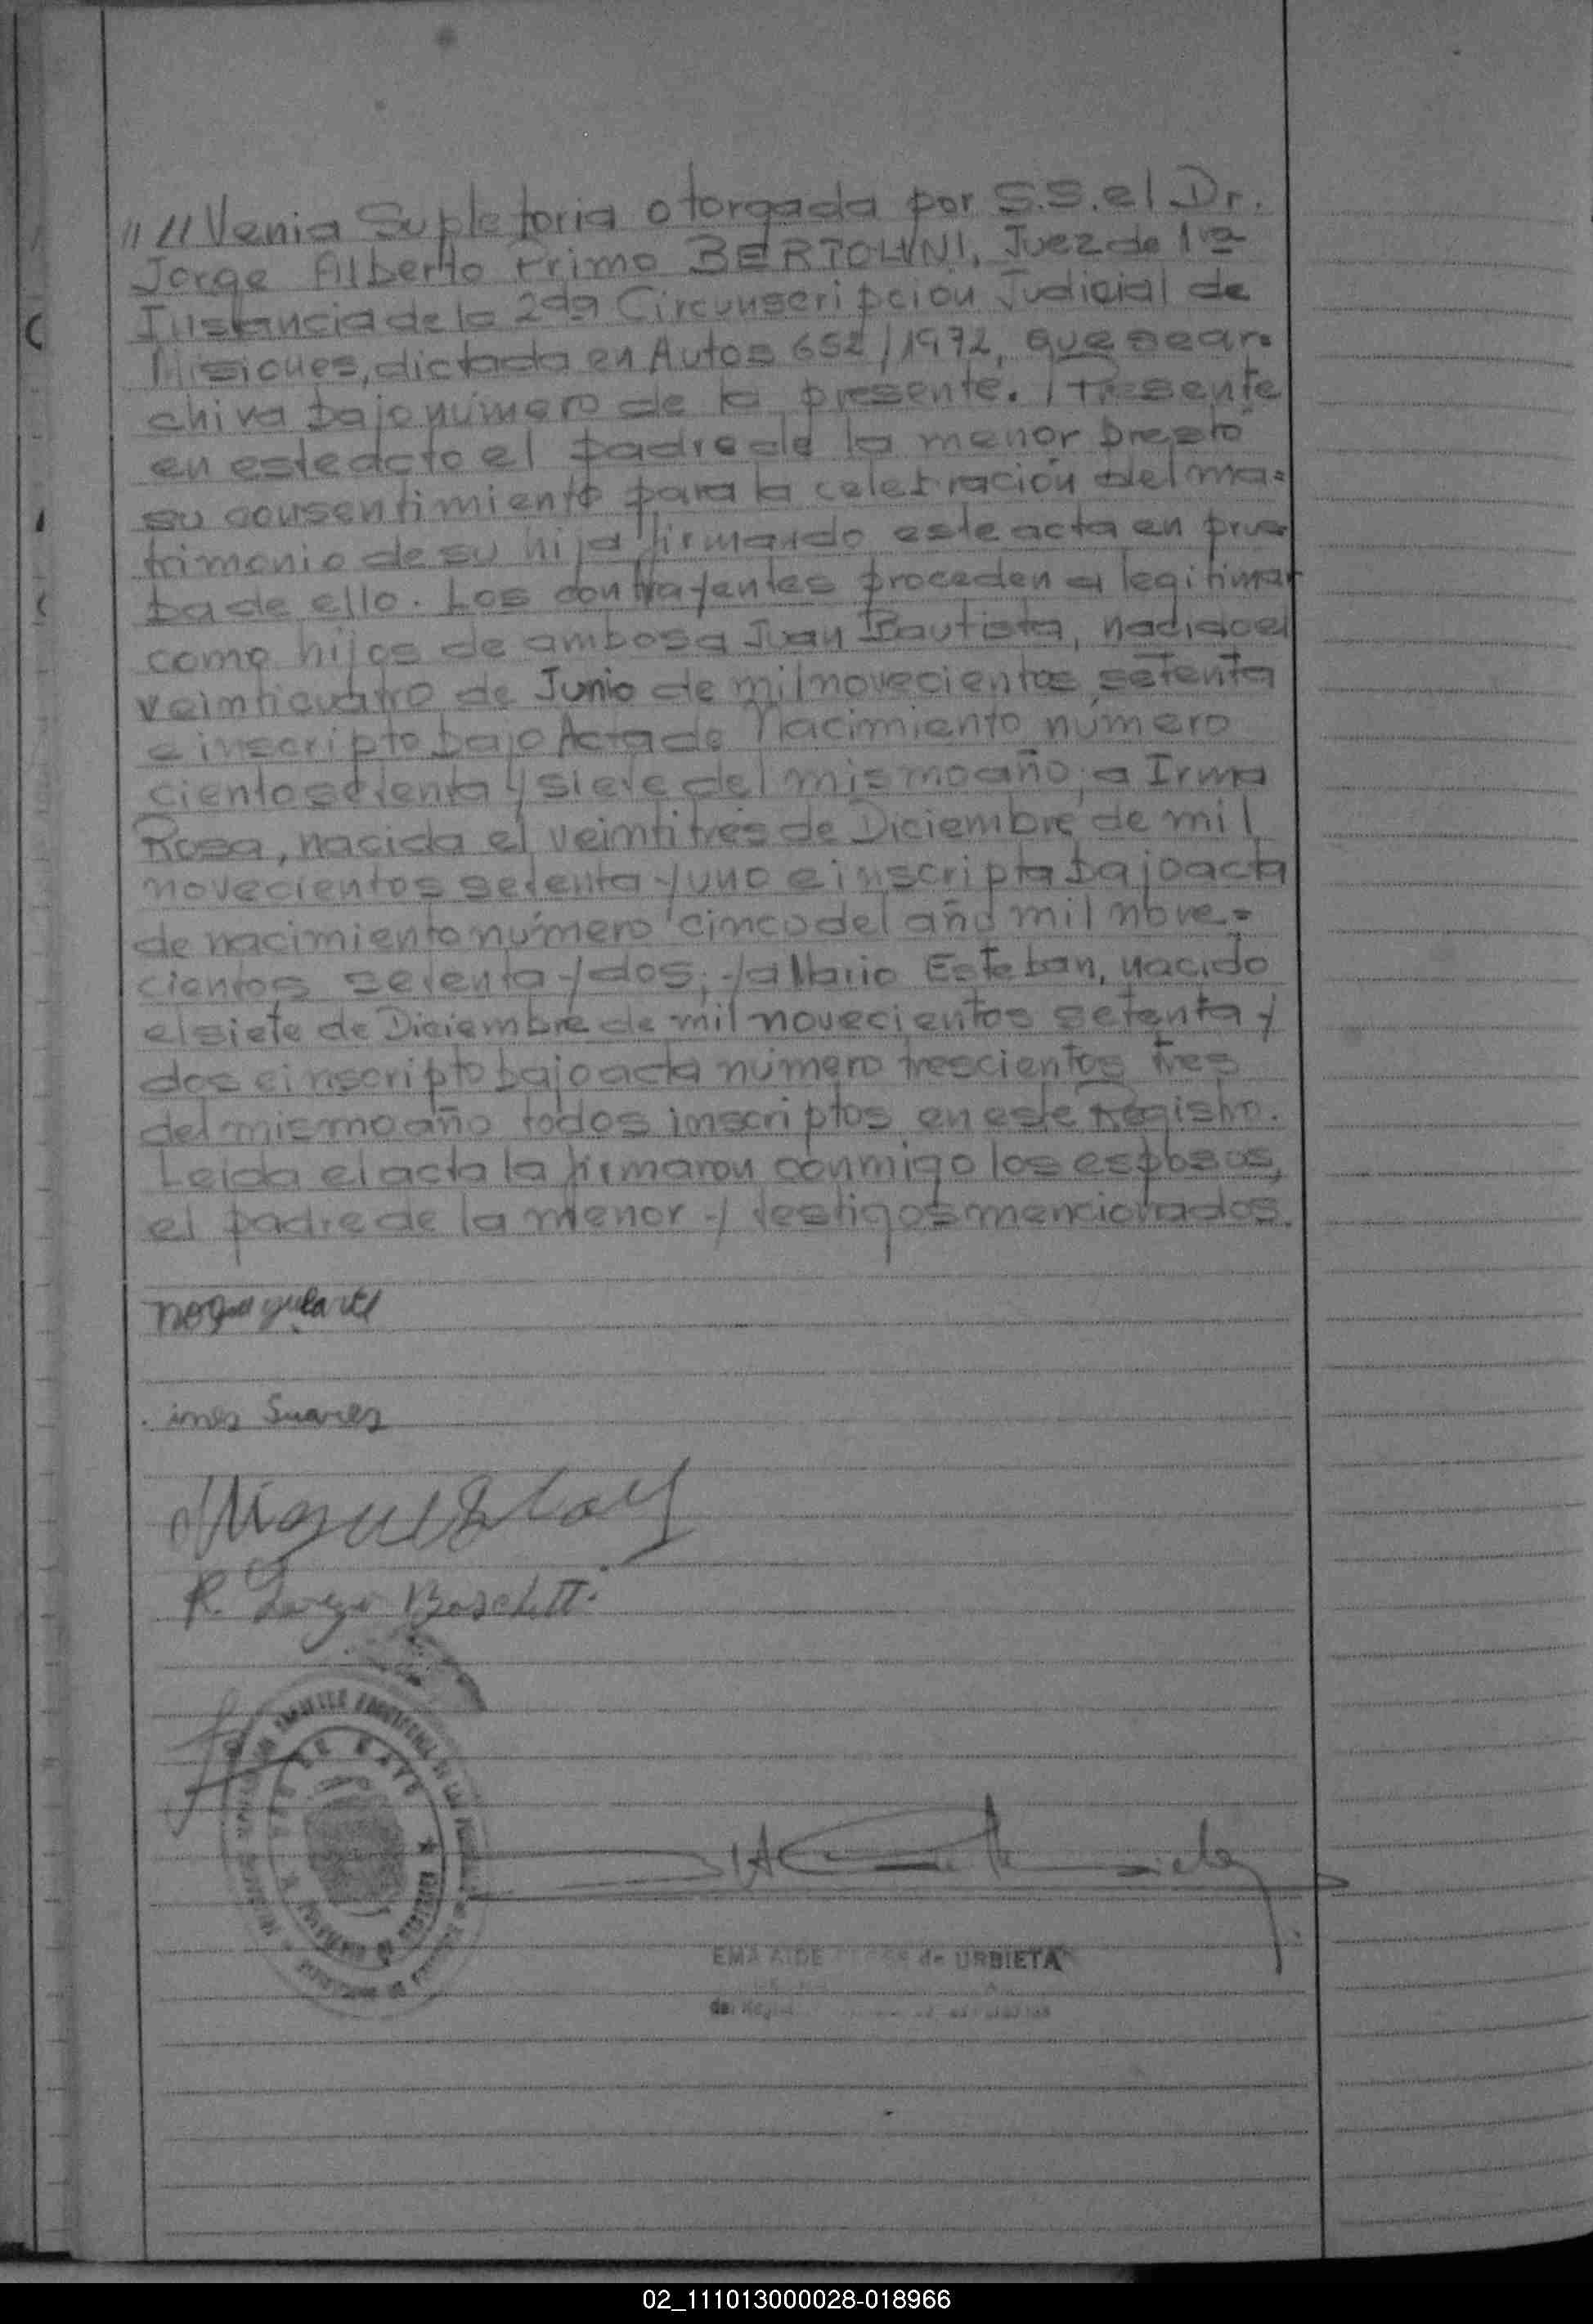 " " Venia Supletoria otorgada por S.S. el Dr.
Jorge Alberto Primo BERTOLINI, Juez de 1ra
Instancia de la 2da Circunscripcion Judicial de
Misiones, dictada en Autos 652/1972, que se ar-
chiva bajo número de la presente. / Presente
en este acto el padre de la menor presto
su consentimiento para la celebración del ma=
trimonio de su hija firmando este acta en prue
ba de ello. Los contrayentes proceden a legitimar
como hijos de ambos a Juan Bautista, nacido el
veinticuatro de Junio de mil novecientos setenta
e inscripto bajo Acta de Nacimiento número
ciento setenta y siete del mismo año; a Irma
Rosa, nacida el veintitres de Diciembre de mil
novecientos setenta y uno e inscripta bajo acta
de nacimiento número cinco del año mil nove=
cientos setenta y dos; y a Mario Esteban, nacido
el siete de Diciembre de mil novecientos setenta y
dos e inscripto bajo acta número trescientos tres
del mismo año todos inscriptos en este Registro.
Leida el acta la firmaron conmigo los esposos,
el padre de la menor y testigos mencionados.
ines Suarez
R. Boschetti
EMA de URBIETA
02_111013000028-018966